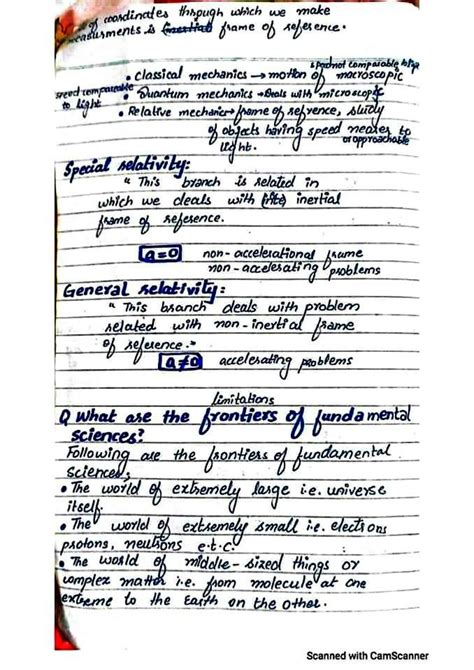 of coordinates through which we make
measurments is inertial frame of reference.
speed not comparable to light
• Classical mechanics → motion of macroscopic
speed comparable to light
• Quantum mechanics → Deals with microscopic
• Relative mechanics → frame of refrence, study
of objects having speed nearer to
or approachable
light.
Special relativity:
"This branch is related in
which we deals with inertial
frame of reference.
a=0 non-accelerational frame
non-accelerating problems
General relativity:
"This branch deals with problem
related with non-inertial frame
of reference."
a≠0 accelerating problems
limitations
Q What are the frontiers of fundamental
sciences?
Following are the frontiers of fundamental
sciences;
• The world of extremely large i.e. universe
itself.
• The world of extremely small i.e. electrons
protons, neutrons e.t.c.
• The world of middle-sized things or
complex matter i.e. from molecule at one
extreme to the Earth on the other.
Scanned with CamScanner